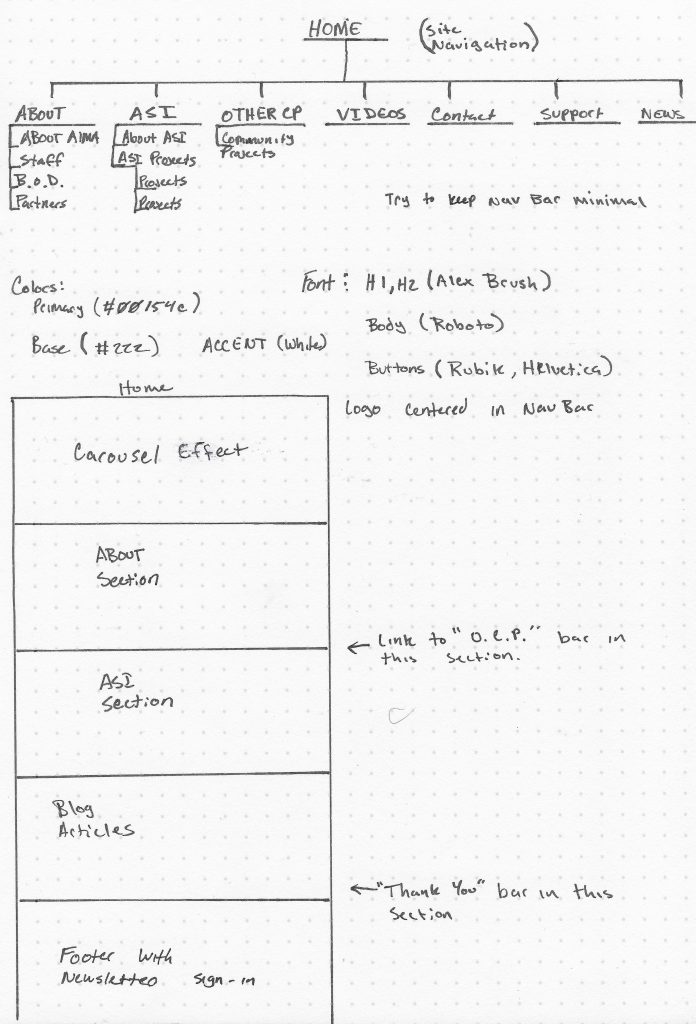 HOME (Site Navigation)
ABOUT ASI OTHER CP VIDEOS Contact Support NEWS
ABOUT AIMA About ASI Community
Staff ASI Projects Projects
B.O.D. Projects
Partners Projects
Try to keep Nav Bar minimal
Colors:
Primary (#00154c)
Base (#222) ACCENT (White)
Font: H1, H2 (Alex Brush)
Body (Roboto)
Buttons (Rubik, Helvetica)
Logo centered in Nav Bar
Home
Carousel Effect
ABOUT
Section
← Link to "O.C.P." bar in
this section.
ASI
Section
Blog
Articles
← "Thank You" bar in this
section
Footer with
Newsletter sign-in